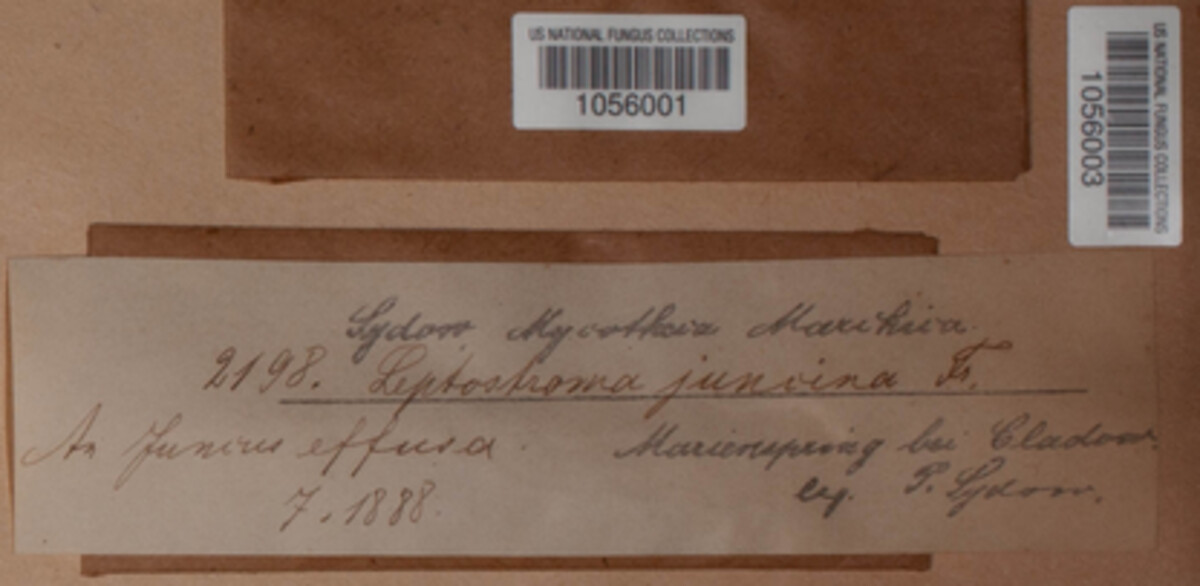 US NATIONAL FUNGUS COLLECTIONS
1056001
US NATIONAL FUNGUS COLLECTIONS
1056003
Sydow, Mycotheca Marchica.
2198. Leptostroma juncina Fr.
An Juncus effusa.
Marienspring bei Cladow.
7. 1888.
leg. P. Sydow.